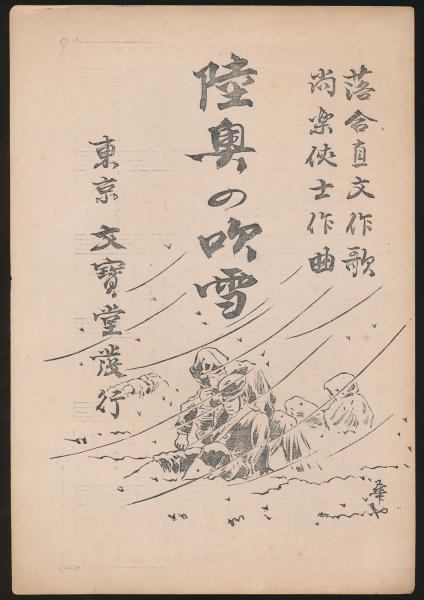 落合直文作歌
尚楽侠士作曲
陸奥の吹雪
東京 文寳堂發行